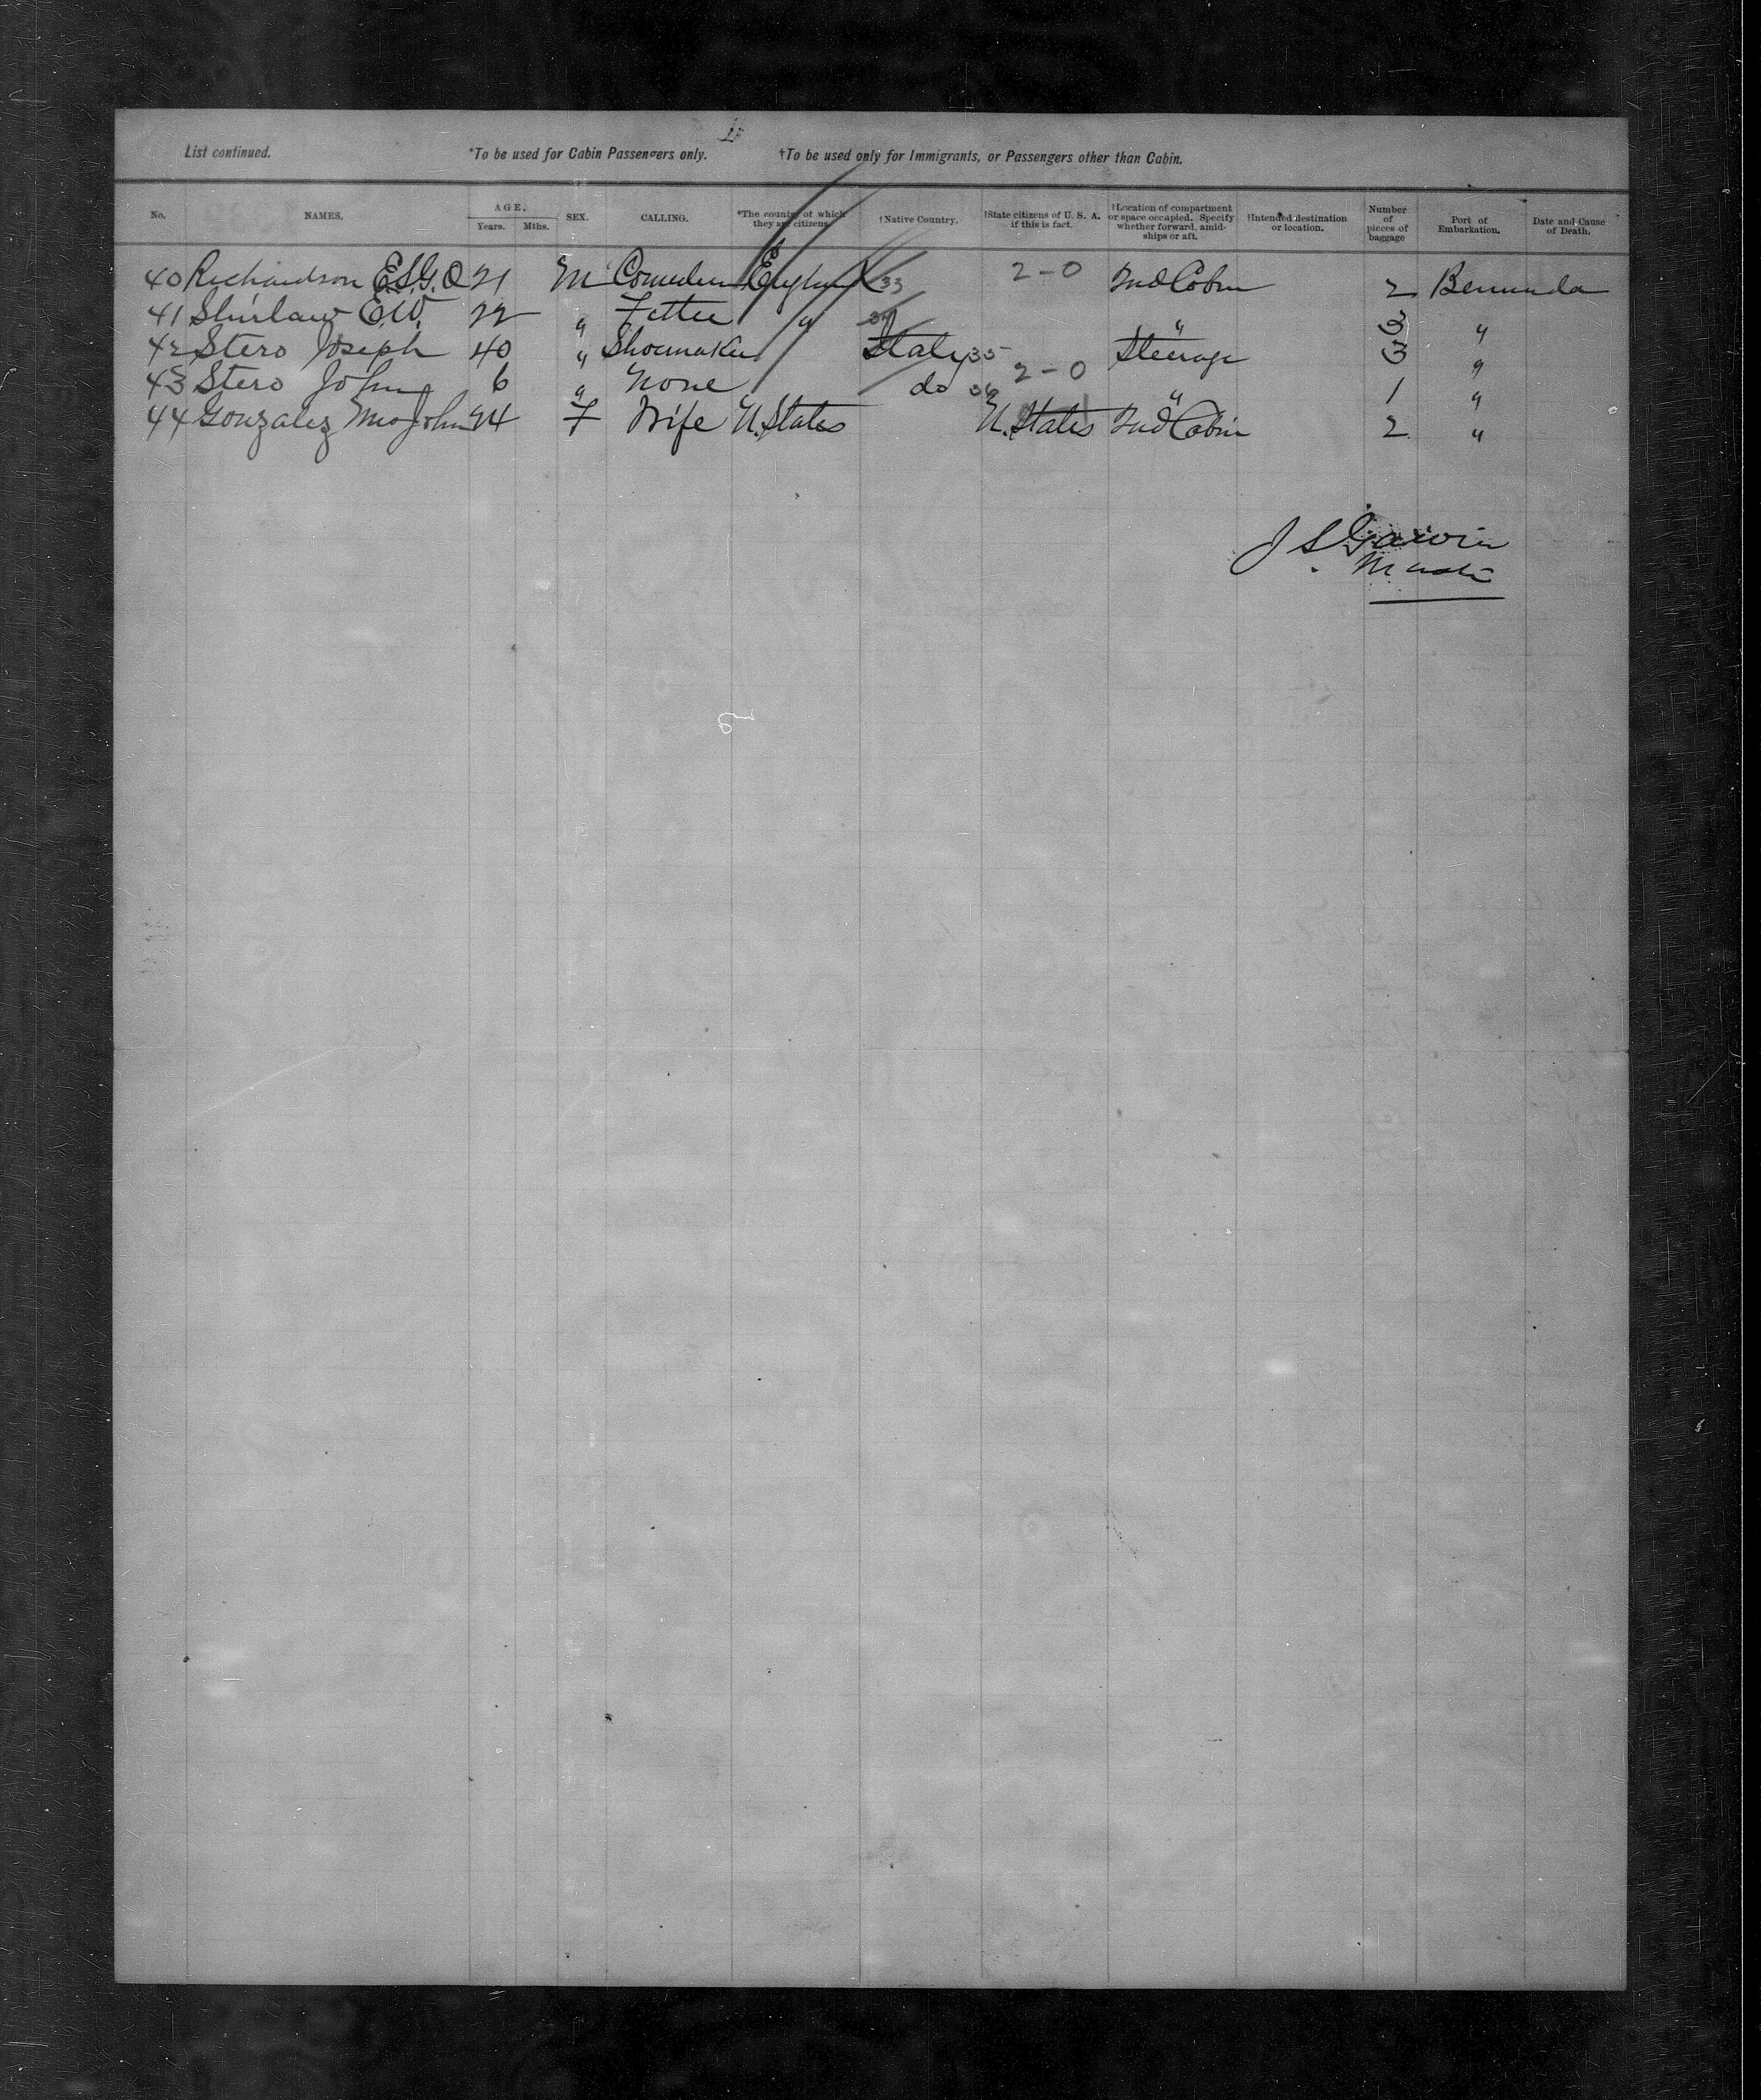 List continued. *To be used for Cabin Passengers only. †To be used only for Immigrants, or Passengers other than Cabin.
No. NAMES. AGE. Years. Mths. SEX. CALLING. *The country of which they are citizens. †Native Country. †State citizens of U. S. A. if this is fact. †Location of compartment or space occupied. Specify whether forward, amidships or aft. †Intended destination or location. Number of pieces of baggage Port of Embarkation. Date and Cause of Death.
40 Richardson E.S.G.O 21 M England 33 2-0 2nd Cabin 2 Bermuda
41 Shirlaw E.W. 22 " Fitter " 34 " 3 "
42 Stero Joseph 40 " Shoemaker Italy 35 Steerage 3 "
43 Stero John 6 " None do 36 2-0 " 1 "
44 Gonzalez Mrs John 24 F Wife U. States U. States 2nd Cabin 2 "
Master